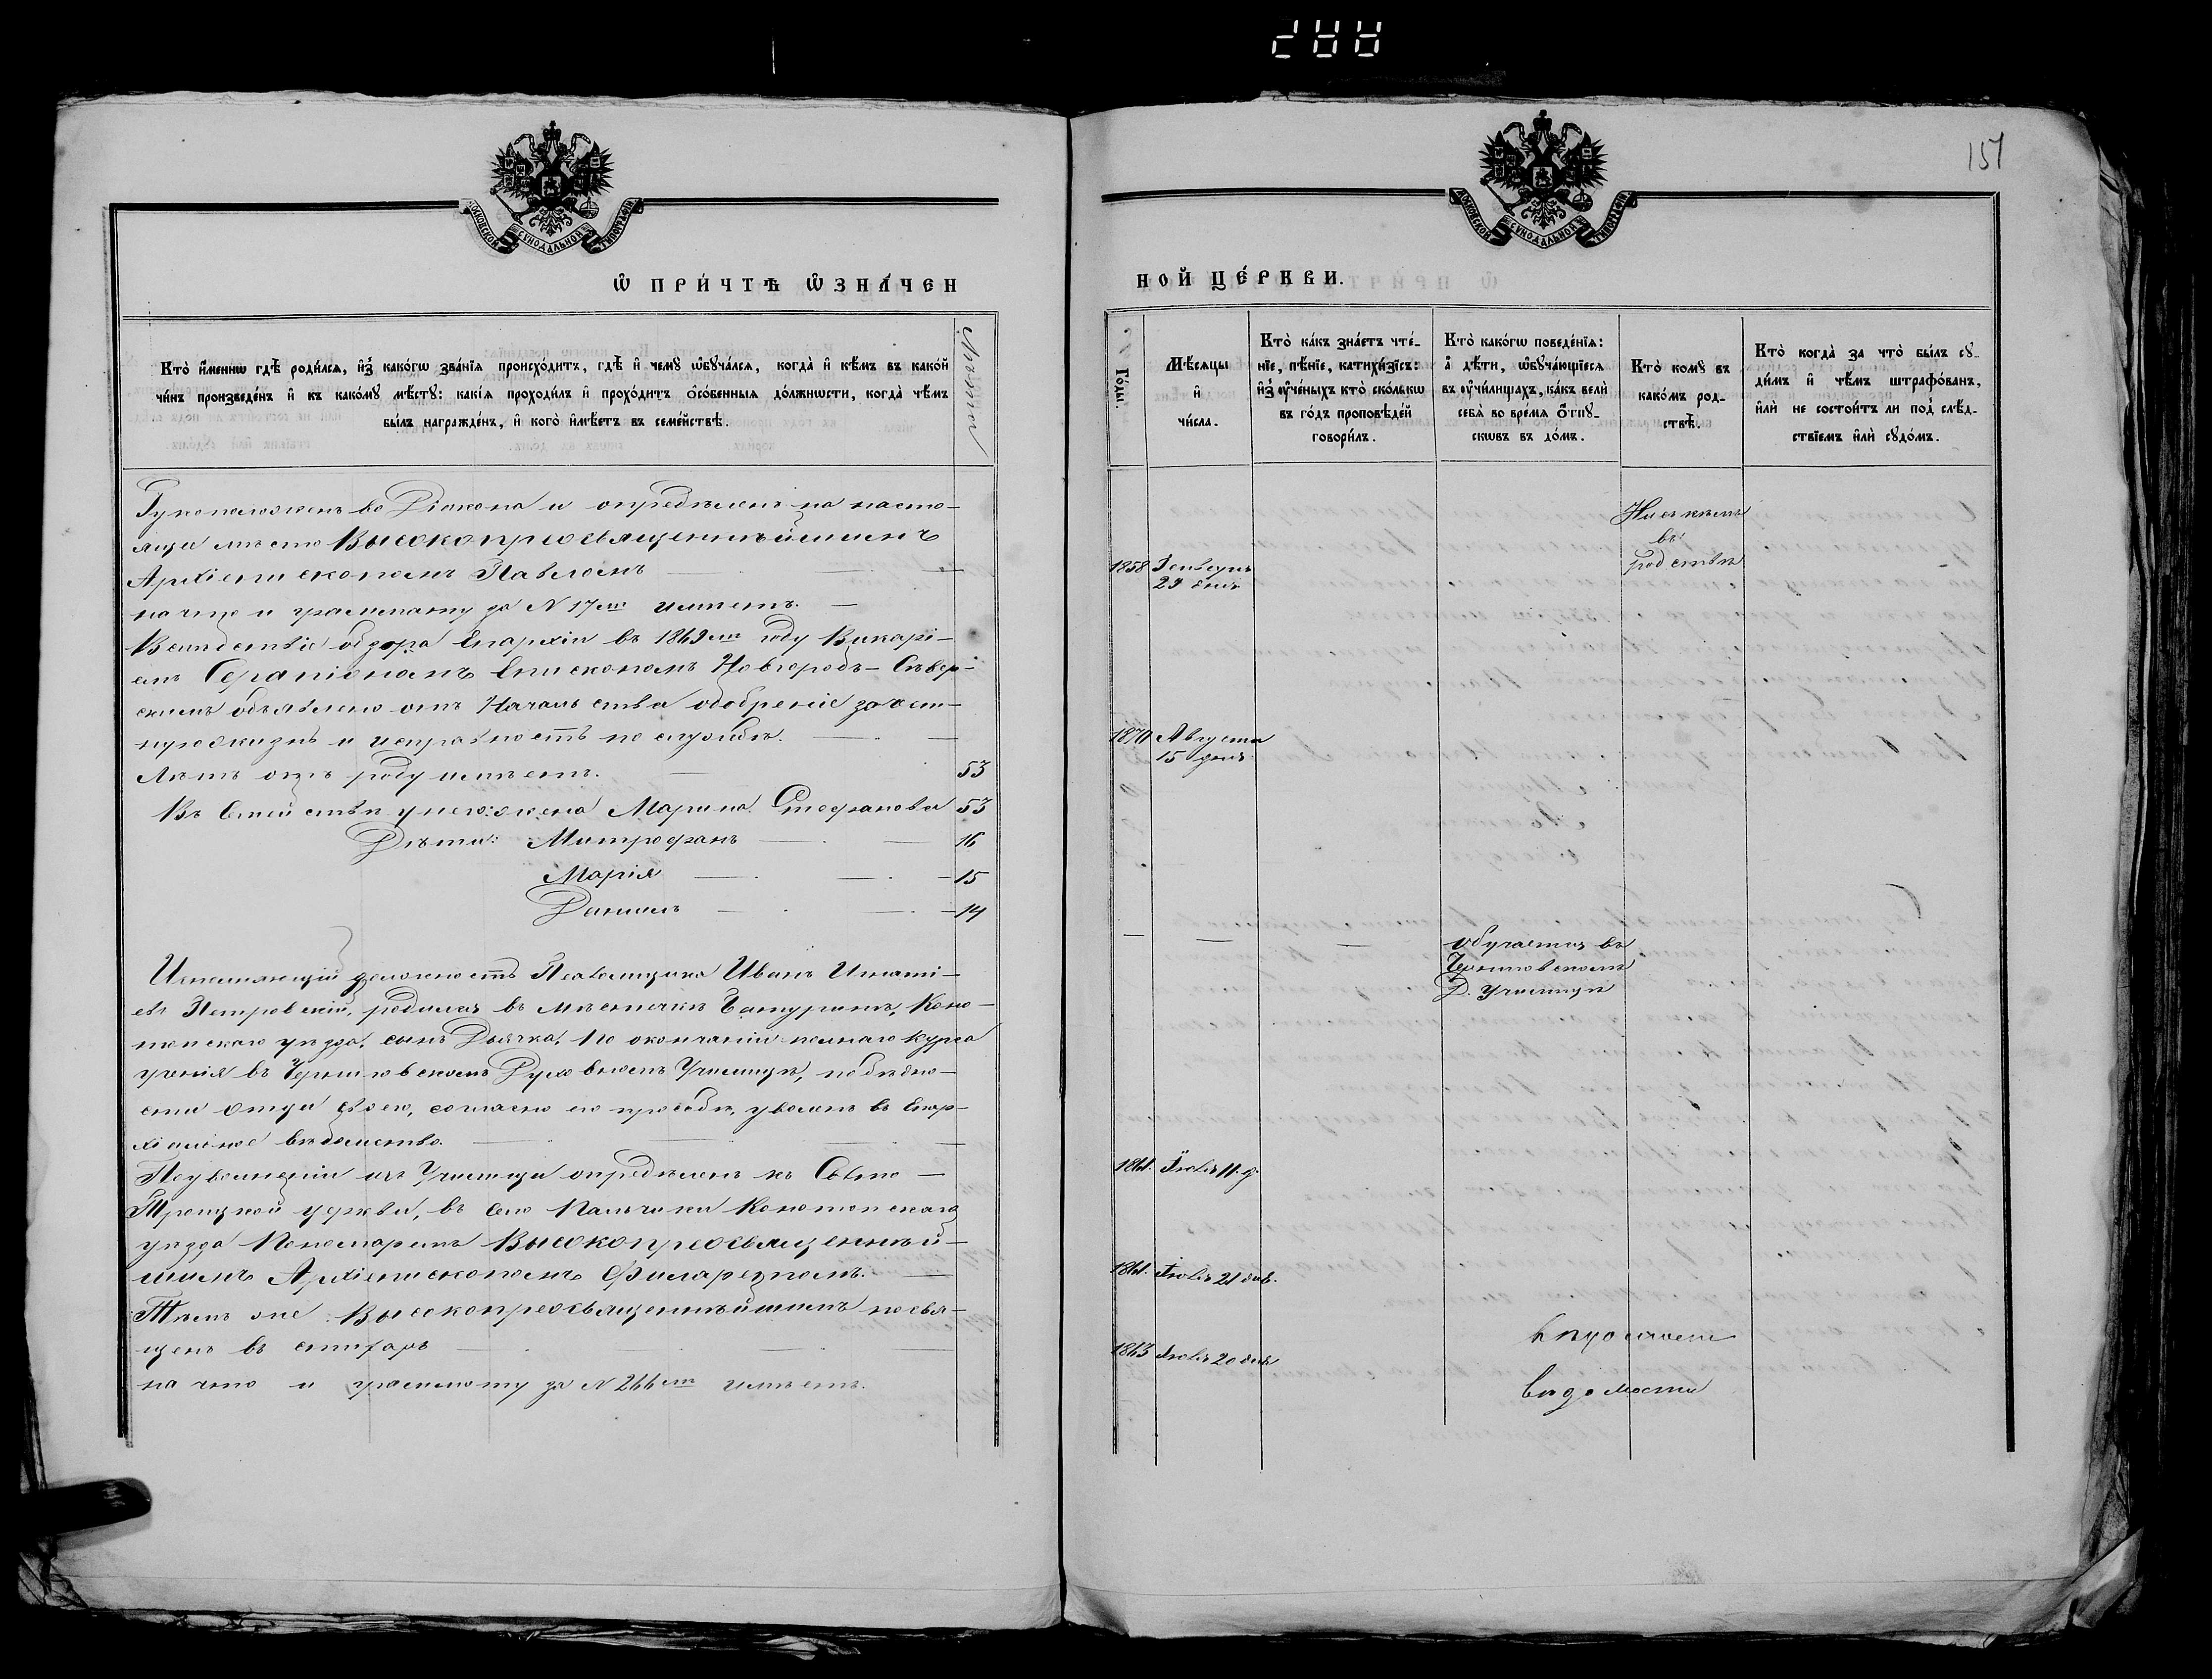 157
МОСКОВСКОЙ СУНОДАЛЬНОЙ ТИПОГРАФІИ
Ѡ ПРИ́ЧТѢ ѠЗНА́ЧЕН
Кто̀ и҆́меннѡ гдѣ̀ роди́лсѧ, и҆з̾ како́гѡ зва́нїѧ происхо́дитъ, гдѣ̀ и҆ чемꙋ̀ ѡ҆бꙋча́лсѧ, когда̀ и҆ кѣ́мъ въ како́й
чи́нъ произведе́нъ и҆ къ како́мꙋ мѣ́стꙋ: какі́ѧ проходи́лъ и҆ прохо́дитъ ѻ҆со́бенныѧ до́лжнѡсти, когда̀ чѣ́мъ
бы́лъ награжде́нъ, и҆ кого̀ и҆мѣ́етъ въ семе́йствѣ.
Лѣта
Рукоположенъ во Діакона и опредѣленъ на насто-
ящее мѣсто Высокопреосвященнѣйшимъ
Архіепископомъ Павломъ
на что и грамматту за N 17мъ имѣетъ.
Вслѣдствіе обзора Епархіи въ 1869мъ году Викарі-
емъ Серапіономъ Епископомъ Новгородъ-Сѣвер-
скимъ объявлено отъ Начальства одобреніе за чест-
ную жизнь и исправность по службѣ.
Лѣтъ отъ роду имѣетъ. 53
Въ Семействѣ у него: жена Марина Стефанова 53
Дѣти: Митрофанъ 16
Марія 15
Даніилъ 14
Исполняющій должность Псаломщика Иванъ Игнаті-
евъ Петровскій, родился въ мѣстечкѣ Батуринѣ, Коно-
топскаго уѣзда, сынъ Дьячка. По окончаніи полнаго курса
ученія въ Черниговскомъ Духовномъ Училищѣ, по бѣдно-
сти отца своего, согласно его просьбы, уволенъ въ Епар-
хіальное вѣдомство.
По увольненіи изъ Училища опредѣленъ къ Свято-
Троицкой церкви, въ село Пальчики Конотопскаго
уѣзда Пономаремъ Высокопреосвященнѣй-
шимъ Архіепископомъ Филаретомъ.
Тѣмъ же Высокопреосвященнѣйшимъ посвя-
щенъ въ стихарь
на что и грамматту за N 266мъ имѣетъ.
МОСКОВСКОЙ СУНОДАЛЬНОЙ ТИПОГРАФІИ
НОЙ ЦЕ́РКВИ.
Го́ды.
Мѣ́сѧцы
и҆
чи́сла.
Кто̀ ка́къ зна́етъ чте́-
нїе, пѣ́нїе, катихи́зїсъ:
и҆з̾ ᲂу҆че́ныхъ кто̀ ско́лькѡ
въ го́дъ проповѣ́дей
говори́лъ.
Кто̀ како́гѡ поведе́нїѧ:
а҆ дѣ́ти, ѡ҆бꙋча́ющїесѧ
въ ᲂу҆чи́лищахъ, ка́къ велѝ
себѧ̀ во времѧ ѻ҆́тпꙋ-
скѡвъ въ до́мъ.
Кто̀ комꙋ̀ въ
како́мъ род-
ствѣ̀.
Кто̀ когда̀ за что̀ бы́лъ сꙋ-
ди́мъ и҆ чѣ́мъ штрафо́ванъ,
и҆лѝ не состои́тъ ли под̾ слѣ́д-
ствїемъ и҆лѝ сꙋдо́мъ.
Ни съ кѣмъ
въ
родствѣ
1858 Генваря
29 дня
1870 Августа
15 дня
обучается въ
Черниговскомъ
Д. Училищѣ
1861. Іюля 11. д.
1861. Іюля 21 дня.
1863 Іюля 20 дня
вѣдомости